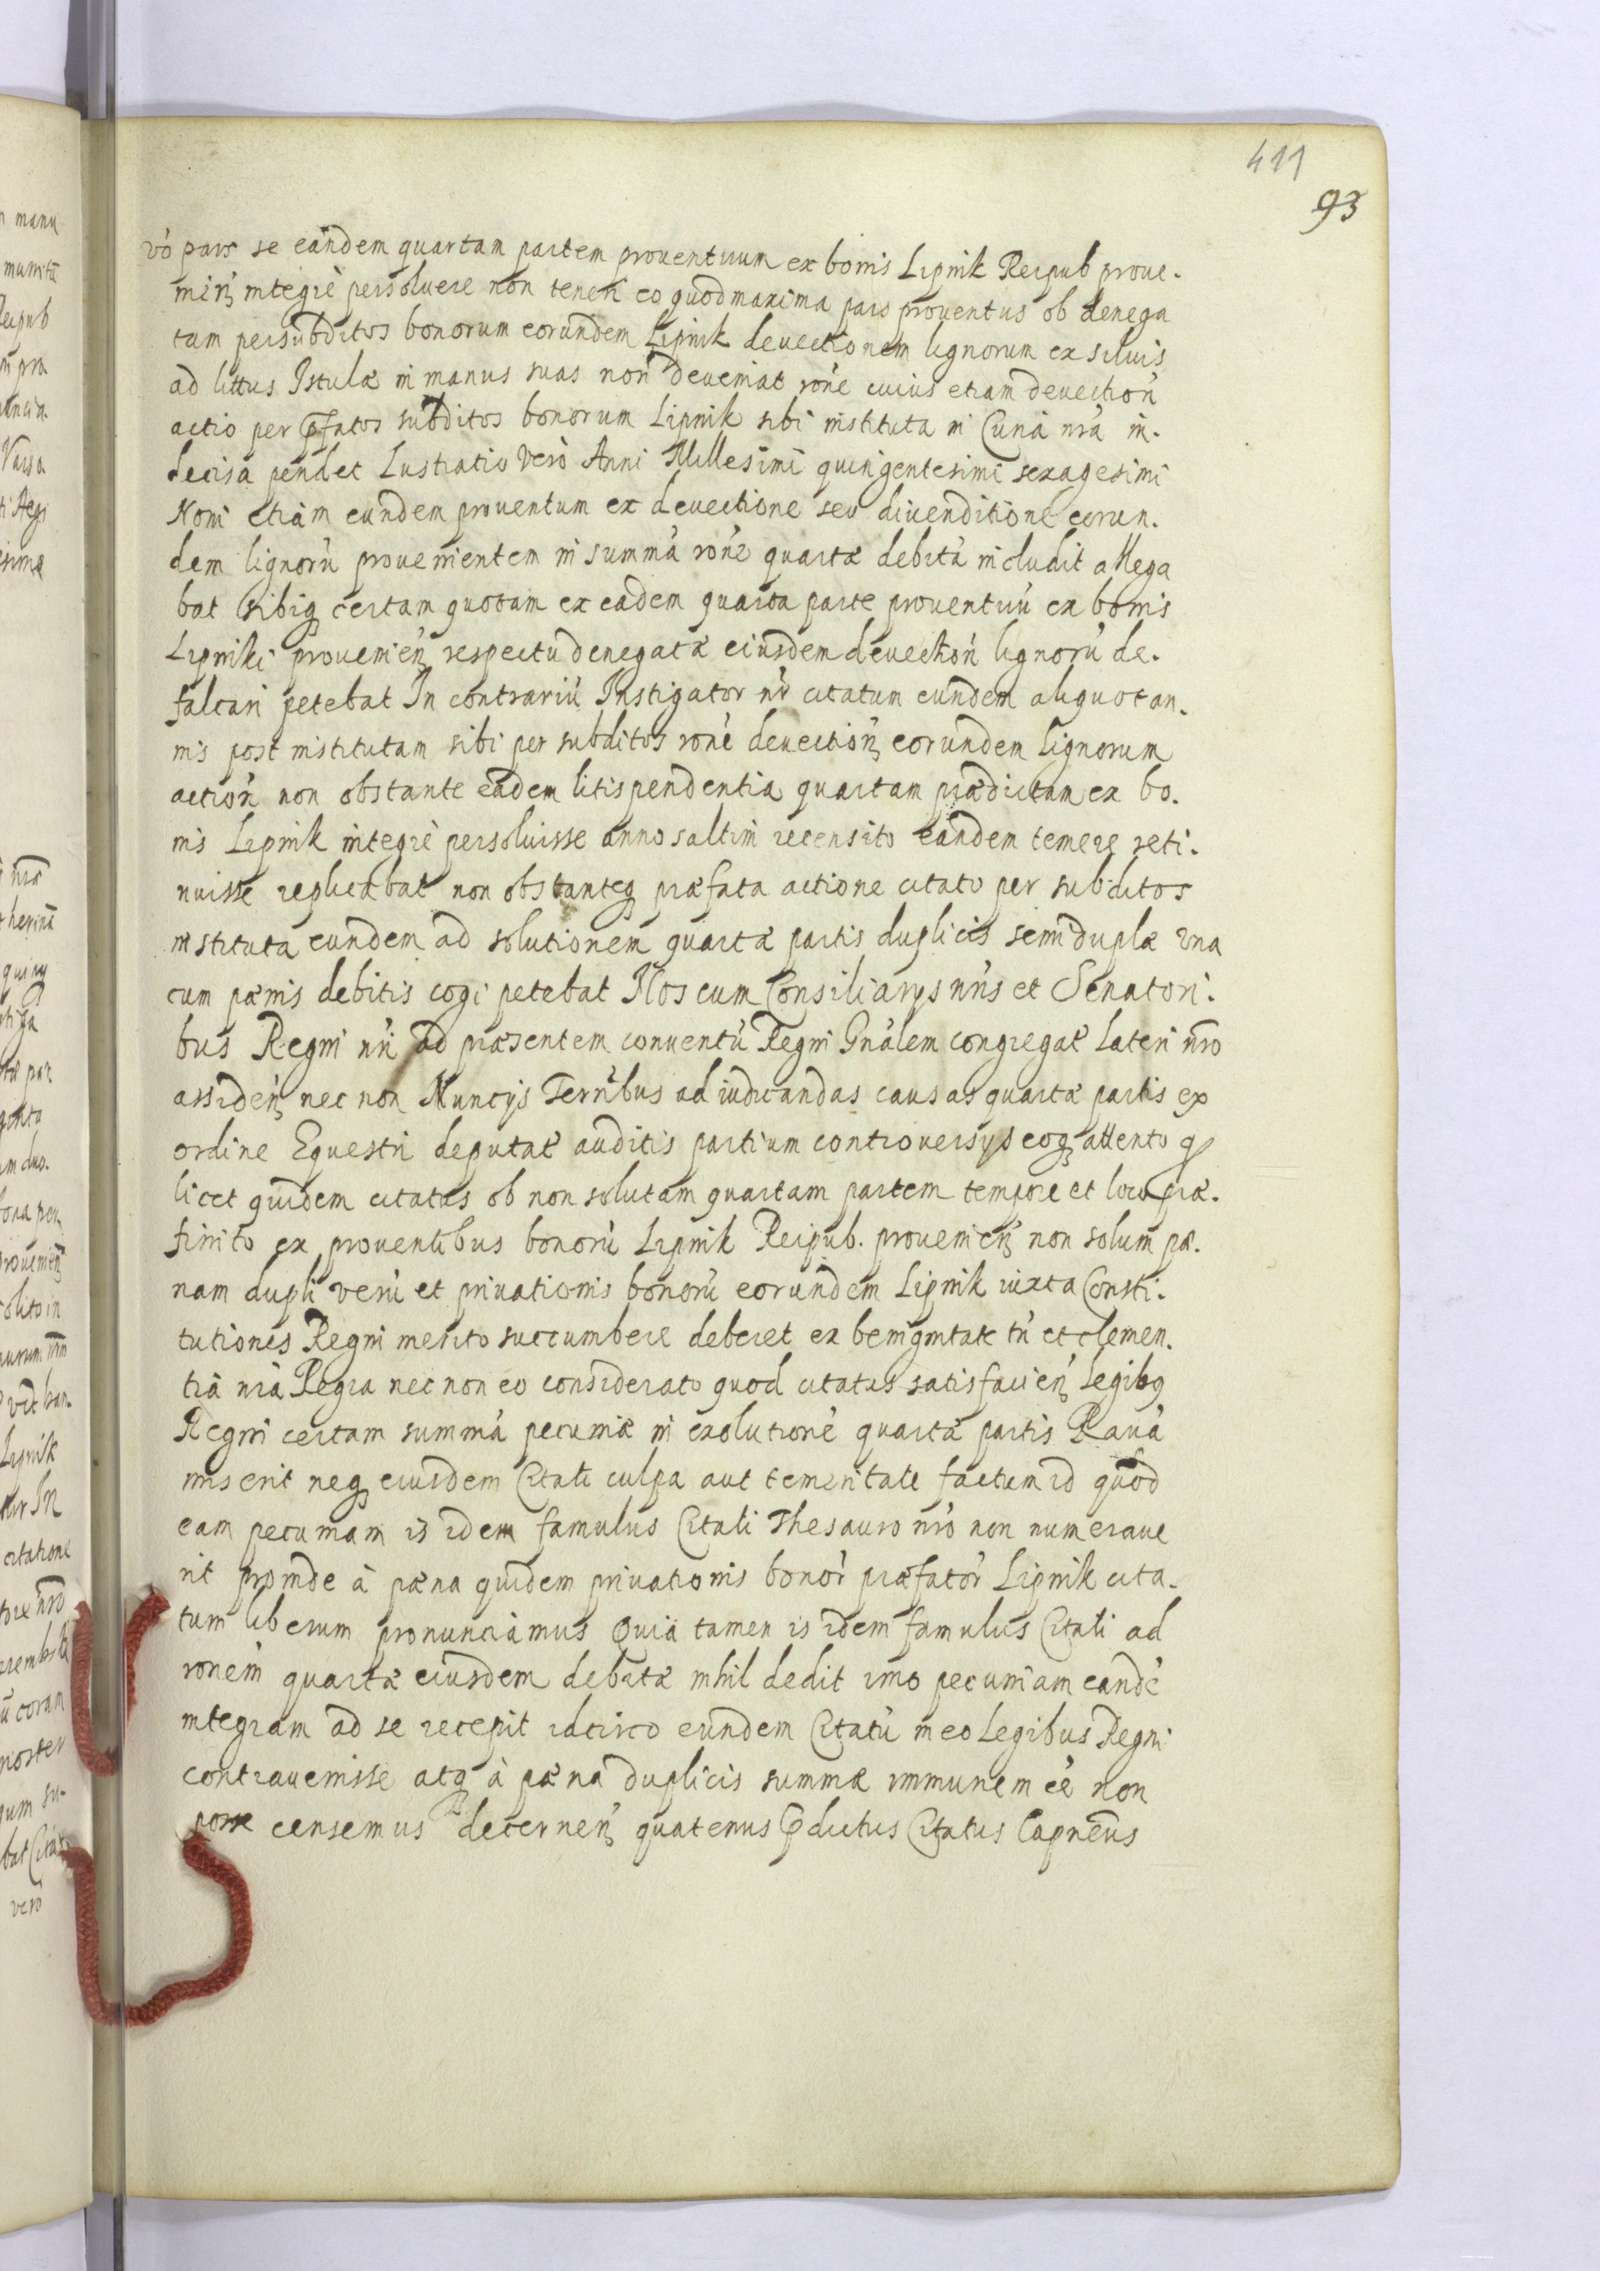 411
93
vó pars se eandem quartam partem prouentuum ex bonis Lipnik Reipub proue-
nień integrè persoluere non teneri eo quod maxima pars prouentus ob denega
tam per subditos bonorum eorundem Lipnik deuectionem lignorum ex siluis
ad littus Istulæ in manus suas non deueniat rone cuius etiam deuectioń
actio per pfatos subditos bonorum Lipnik sibi instituta in Curia nrã in-
decisa pendet Lustratio verò Anni Millesimi quingentesimi sexagesimi
Noni etiam eundem prouentum ex deuectione seu diuenditione eorun-
dem lignorũ prouenientem in summã rone quartæ debitã includit allega
bat sibiq certam quotam ex eadem quarta parte prouentuũ ex bonis
Lipniki prouenień respectu denegatæ eiusdem deuectioń lignorũ de-
falcari petebat In contrariũ Instigator nr citatum eundem aliquot an-
nis post institutam sibi per subditos rone deuectioń eorundem lignorum
actioń non obstante eadem litispendentia quartam prædictam ex bo-
nis Lipnik integrè persoluisse anno saltim recensito eandem temere reti-
nuisse replicabat non obstanteq præfata actione citato per subditos
instituta eundem ad solutionem quartæ partis duplicis semiduplæ vna
cum pænis debitis cogi petebat Nos cum Consiliarys nris et Senatori-
bus Regni nri ad præsentem conuentũ Regni Gnãlem congregat Lateri nro
assideń nec non Nuncys Terribus ad iudicandas causas quartæ partis ex
ordine Equestri deputat auditis partium controuersys eoq attento q
licet quidem citatus ob non solutam quartam partem tempore et loco præ-
finito ex prouentibus bonorũ Lipnik Reipub. prouenień non solum pæ-
nam dupli verũ et priuationis bonorũ eorundem Lipnik iuxta Consti-
tutiones Regni merito succumbere deberet ex benignitate tn et clemen-
tia nra Regia nec non eo considerato quod citatus satisfacień Legibq
Regni certam summã pecuniæ in exolutionẽ quartæ partis Rauã
miserit neq eiusdem Citati culpa aut temeritate factum id quod
eam pecuniam is idem famulus Citati Thesauro nro non numeraue
rit proinde à pæna quidem priuationis bonor præfator Lipnik cita-
tum liberum pronunciamus Quia tamen is idem famulus Citati ad
ronem quartæ eiusdem debitæ nihil dedit imo pecuniam eandẽ
integram ad se recepit idcirco eundem Citatũ in eo Legibus Regni
contrauenisse atq à pæna duplicis summæ immunem eẽ non
posse censemus decerneń quatenus pdictus Citatus Capneus